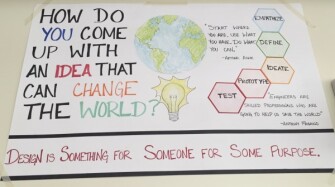 HOW DO
YOU COME
UP WITH
AN IDEA THAT
CAN CHANGE
THE WORLD?
"START WHERE
YOU ARE, USE WHAT
YOU HAVE, DO WHAT
YOU CAN."
- ARTHUR ASHE
EMPATHIZE
DEFINE
IDEATE
PROTOTYPE
TEST
GOING TO HELP TO SAVE THE WORLD"
DESIGN IS SOMETHING FOR SOMEONE FOR SOME PURPOSE.